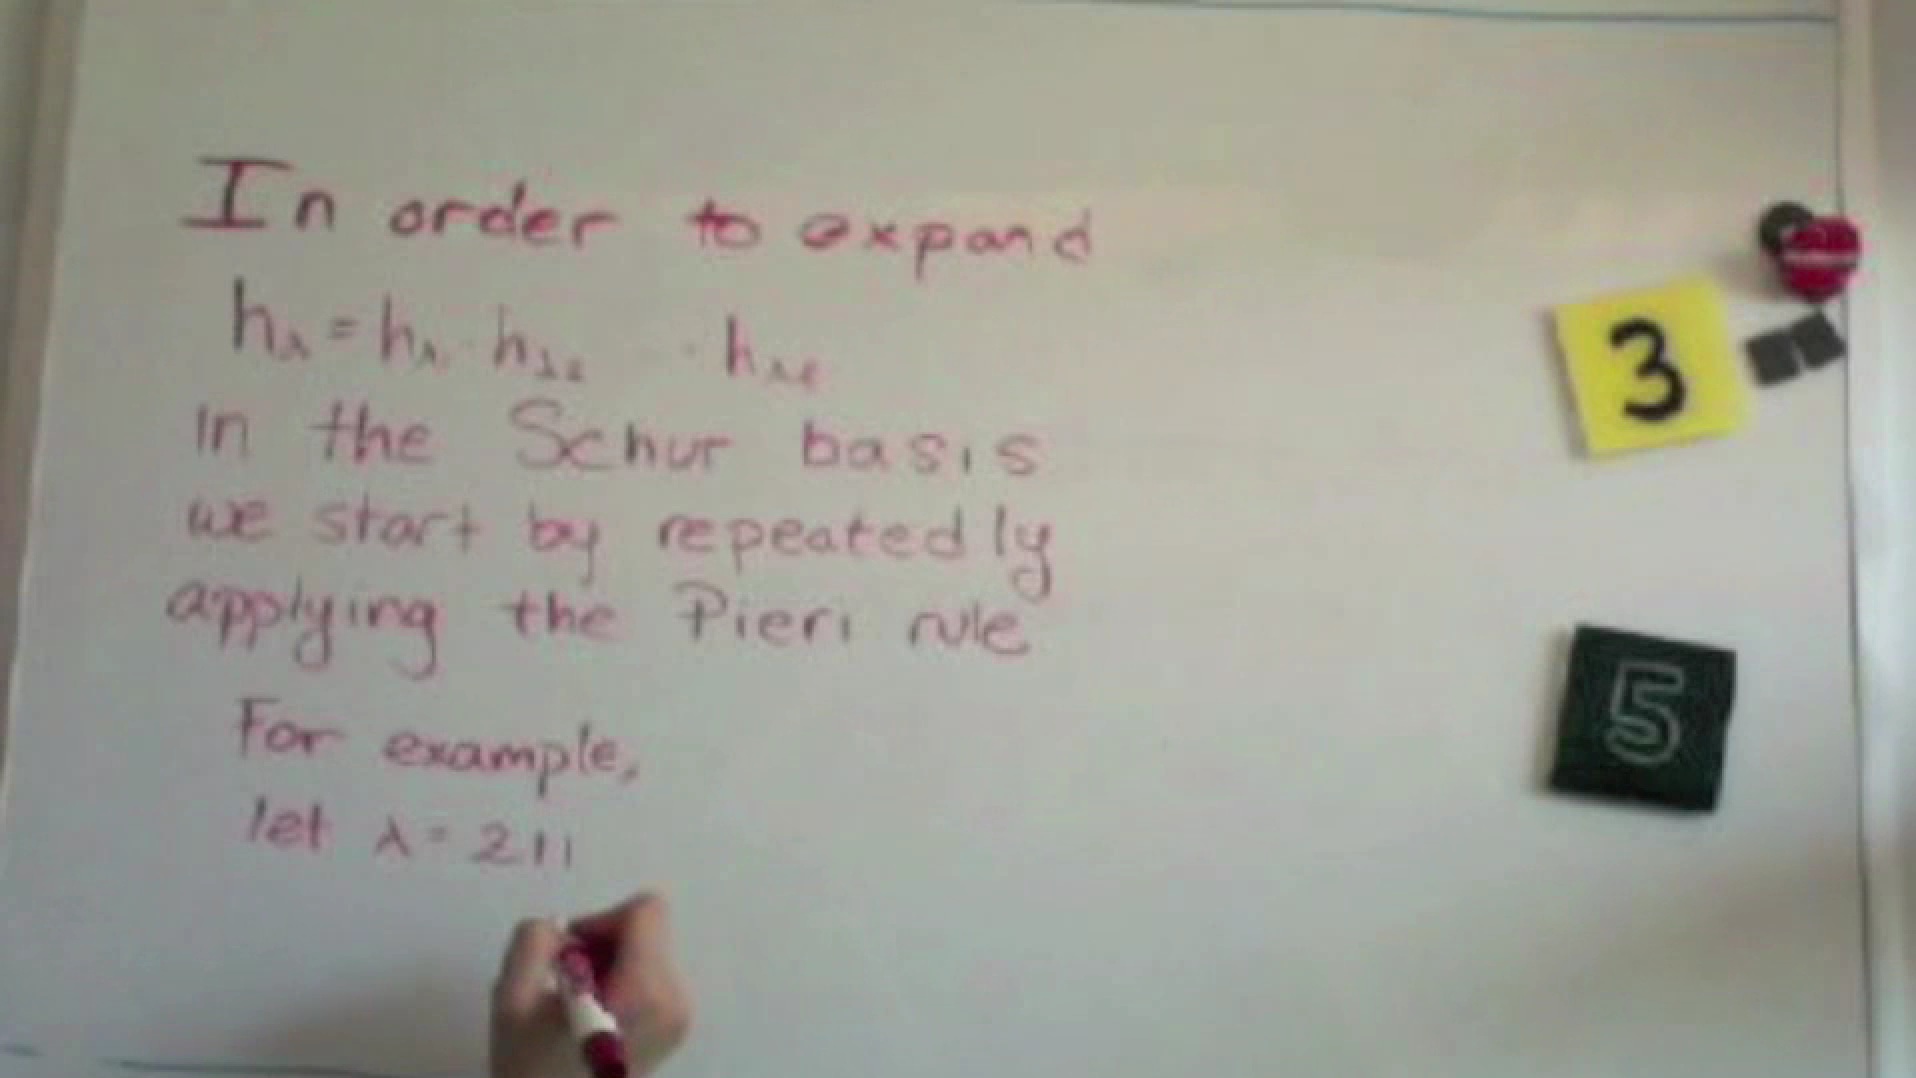 In order to expand
hλ = hλ₁ · hλ₂ · hλℓ
in the Schur basis
we start by repeatedly
applying the Pieri rule
For example,
let λ = 211
3
5